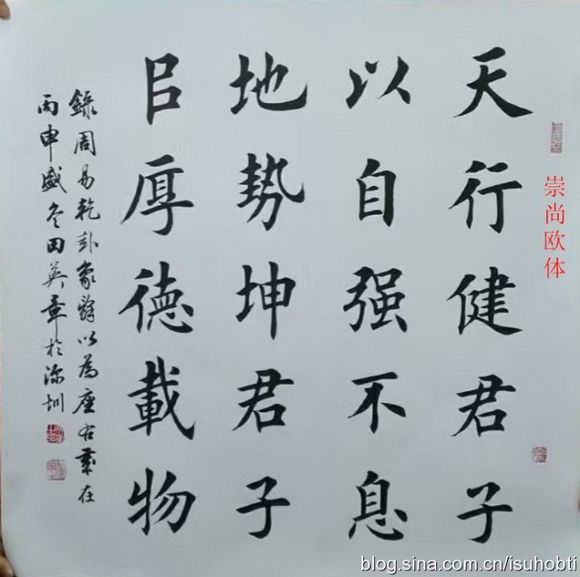 崇尚欧体
天行健君子
以自强不息
地勢坤君子
㠯厚德載物
錄周易乾卦象辭以為座右歲在
丙申盛冬田英章於深圳
blog.sina.com.cn/isuhobti